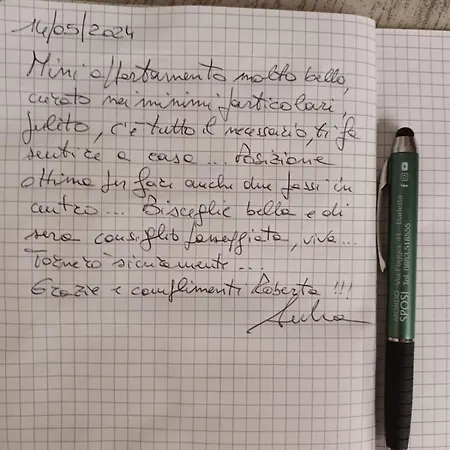 14/05/2024
Mini appartamento molto bello,
curato nei minimi particolari,
pulito, c'è tutto il necessario, ti fa
sentire a casa ... Posizione
ottima per fare anche due passi in
centro... Bisceglie bella e di
sera consiglio passeggiata, viva...
Tornerò sicuramente...
Grazie e complimenti Roberta !!!
MONDO SPOSI
Via Foggia, 41 - Barletta
Tel. 0883.518555